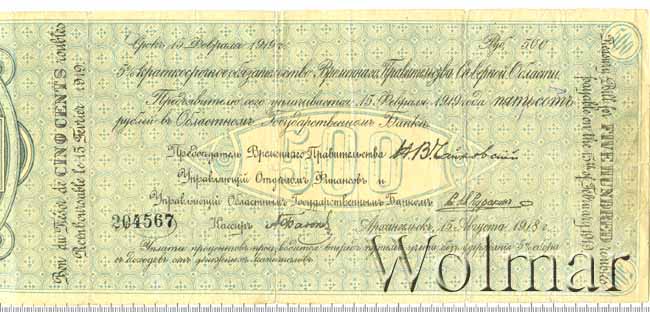 Срокъ 15 Февраля 1919 г. Руб. 500
5% краткосрочное обязательство Временнаго Правительства Сѣверной Области.
Предъявителю сего уплачивается 15 Февраля 1919 года пятьсотъ
рублей въ Областномъ Государственномъ Банкѣ.
500
Предсѣдатель Временнаго Правительства Н.В. Чайковскій
Управляющій Отдѣломъ Финансовъ и
Управляющій Областнымъ Государственнымъ Банкомъ
204567 Кассиръ Архангельскъ, 15 Августа 1918 г.
Уплата процентовъ производится впередъ
съ доходовъ отъ денежныхъ капиталовъ.
Bon du Trésor de CINQ CENTS roubles
Remboursable le 15 Février 1919
Treasury Bill for FIVE HUNDRED roubles
payable on the 15th of February 1919
Wolmar